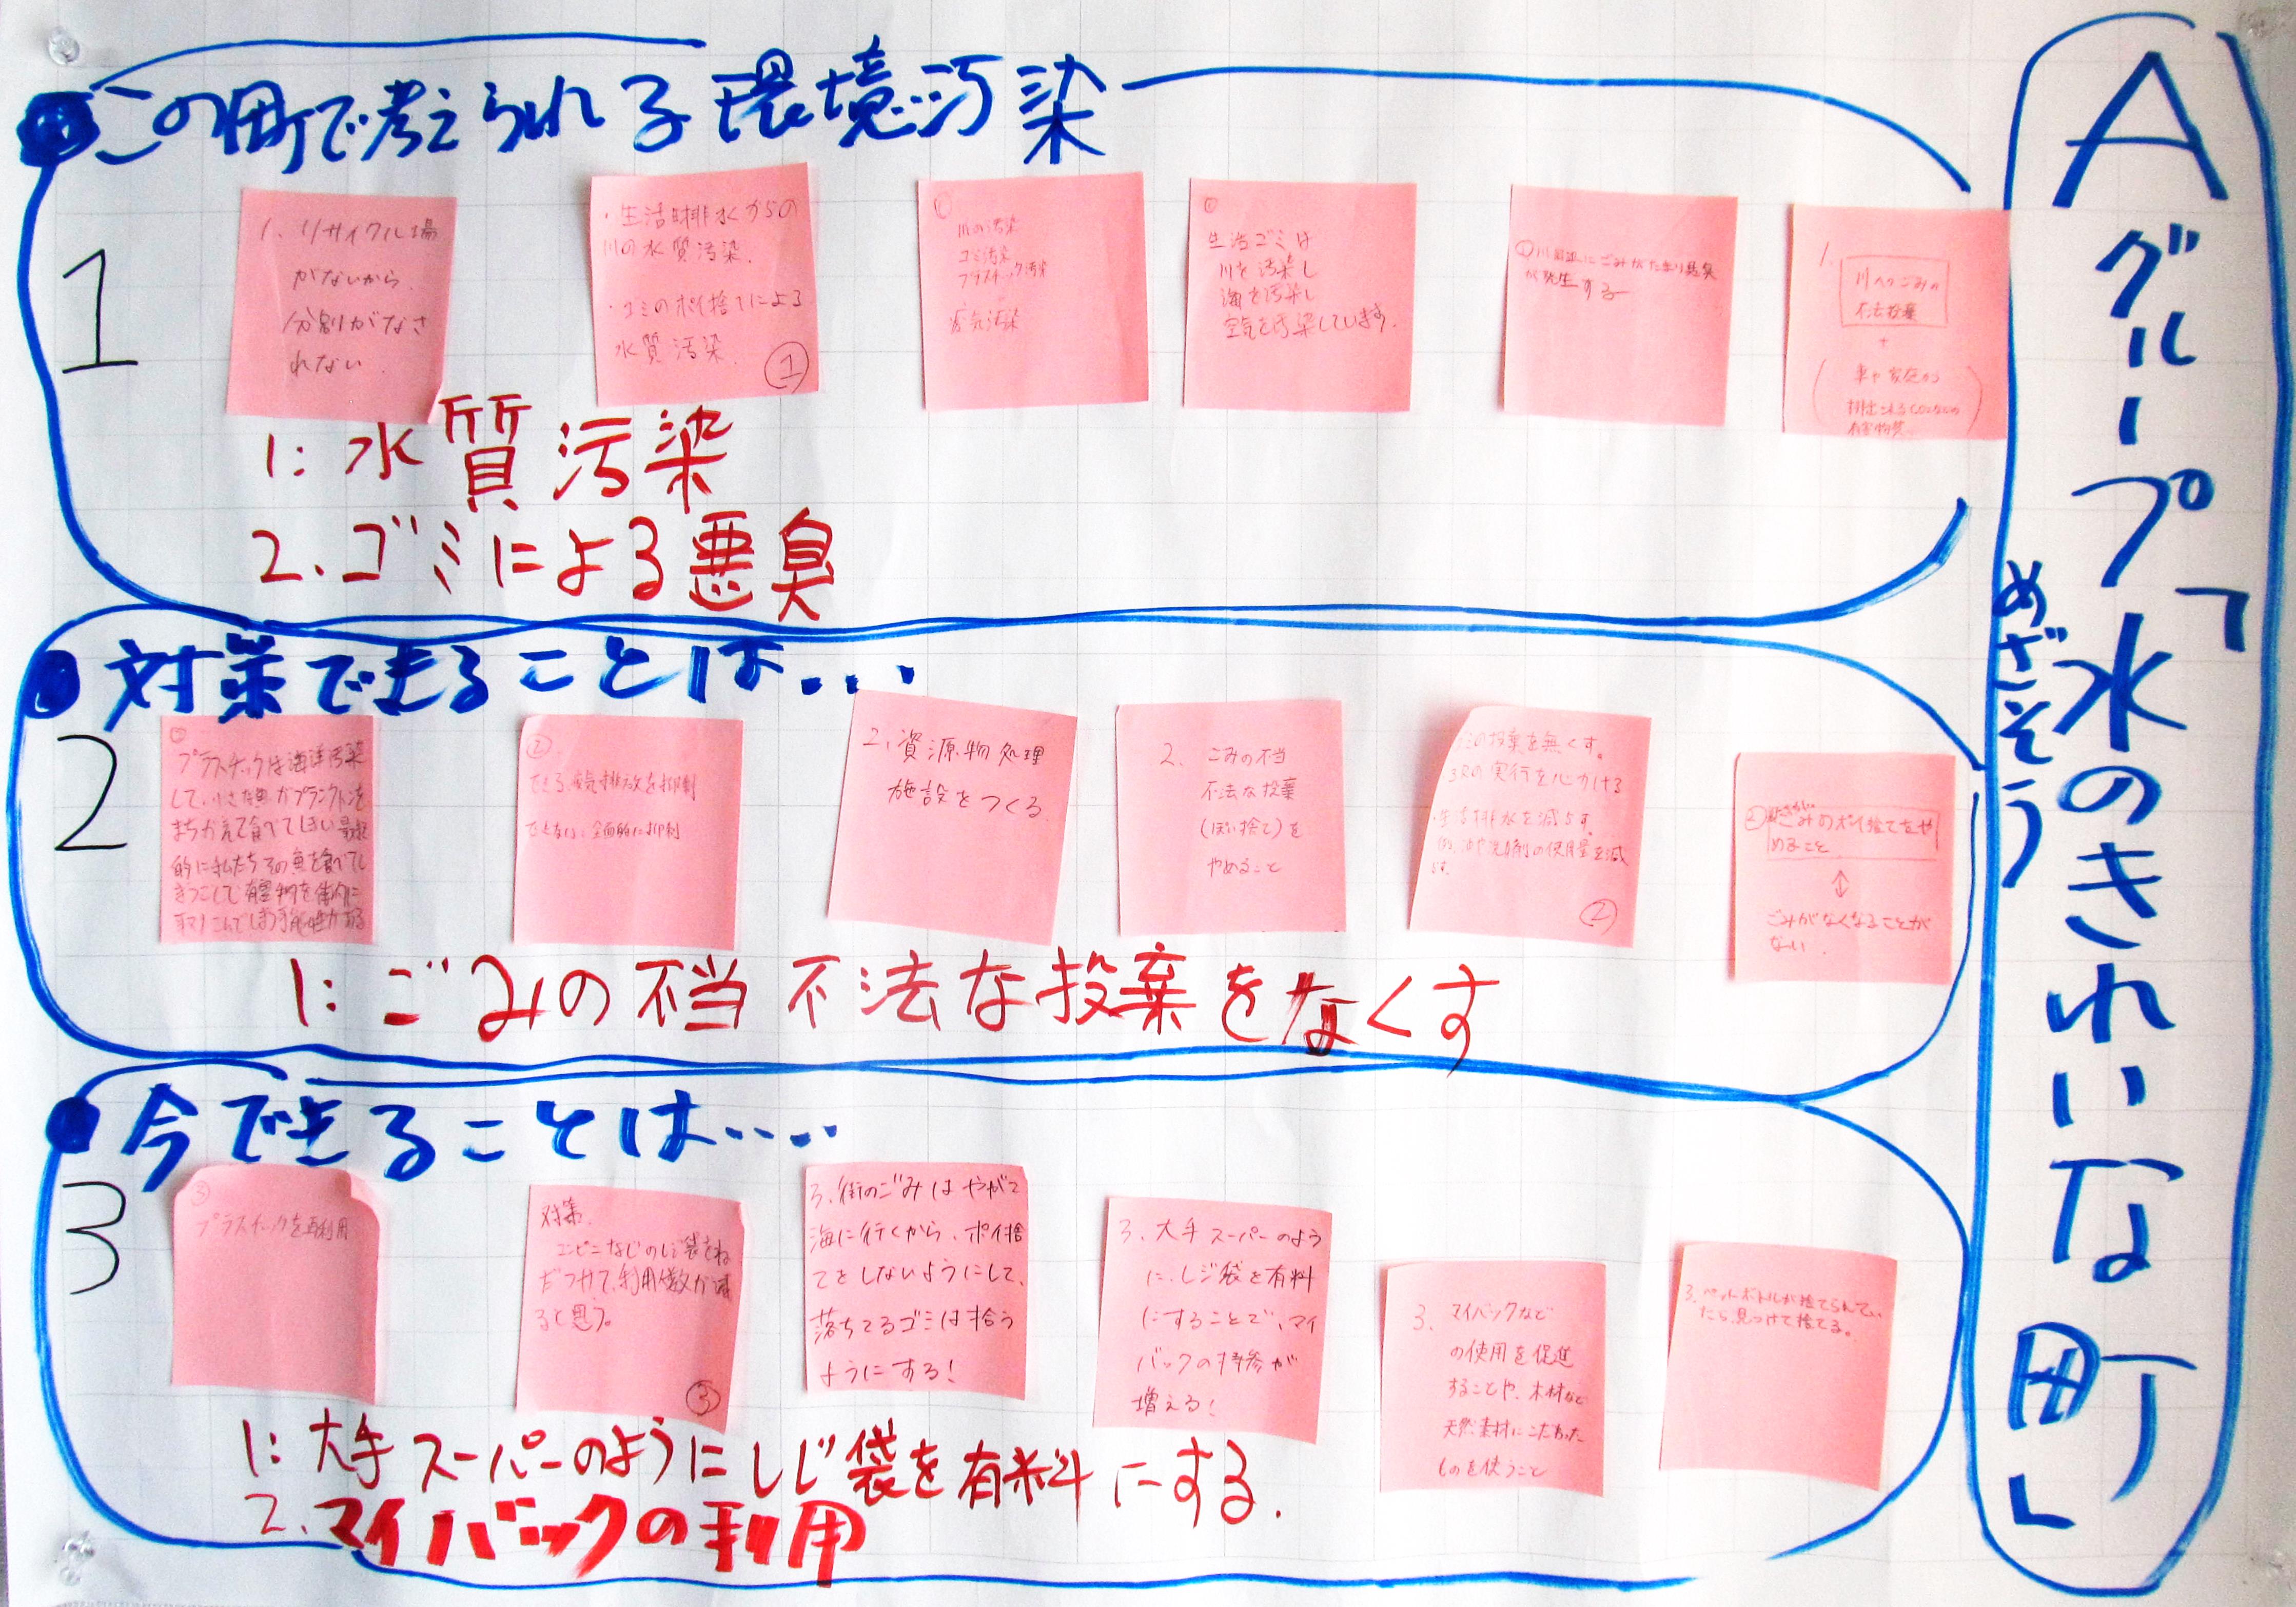 Aグループ「水のきれいな町」
めざそう
この町で考えられる環境汚染
1
1. リサイクル場
がないから
分別がなさ
れない.
・生活排水からの
川の水質汚染.
・ゴミのポイ捨てによる
水質汚染.
①
①
川の汚染
ゴミ汚染
プラスチック汚染
空気汚染
①
生活ゴミは
川を汚染し
海を汚染し
空気を汚染しています.
①川周辺にごみがたまり悪臭
が発生する
1.
川へのごみの
不法投棄
+
車や家庭から
排出される
有害物質
1: 水質汚染
2. ゴミによる悪臭
対策できることは...
2
②
プラスチックは海洋汚染
して、小さな魚がプランクトンを
まちがえて食べてしまい最終
的に私たちその魚を食べてし
まうことで有害物を体内に
取りこんでしまう可能性がある
②
できる、排気を抑制
できない: 全面的に抑制
2. 資源物処理
施設をつくる
2. ごみの不当
不法な投棄
(ぽい捨て)を
やめること
ゴミの投棄を無くす。
3Rの実行を心がける
・生活排水を減らす。
例、油や洗剤の使用量を減
らす。
②
②ごみのポイ捨てをや
めること
↕
ごみがなくなることが
ない.
1: ごみの不当 不法な投棄をなくす
今できることは....
3
③
プラスチックを再利用
対策.
コンビニなどのレジ袋をね
だつけて、利用する数が減
ると思う。
③
3. 街のごみはやがて
海に行くから、ポイ捨
てをしないようにして、
落ちてるゴミは拾う
ようにする!
3. 大手スーパーのよう
に、レジ袋を有料
にすることで、マイ
バックの持参が
増える!
3. マイバックなど
の使用を促進
することや、木材など
天然素材にこだわった
ものを使うこと
3. ペットボトルが捨てられてい
たら見つけて捨てる。
1: 大手スーパーのようにレジ袋を有料にする.
2. マイバックの利用